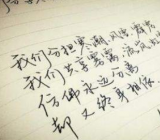 我们分担寒潮风雷霹雳
我们共享雾霭流岚虹霓
仿佛永远分离
却又终身相依